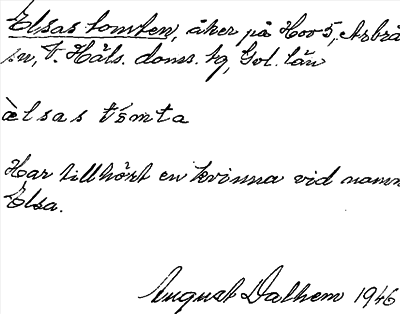 Elsas tomten, åker på Hov 5, Arbrå
sn, V. Häls. doms. tg, Gvl. län
èlsas tómta
Har tillhört en kvinna vid namn
Elsa.
August Dalhem 1946